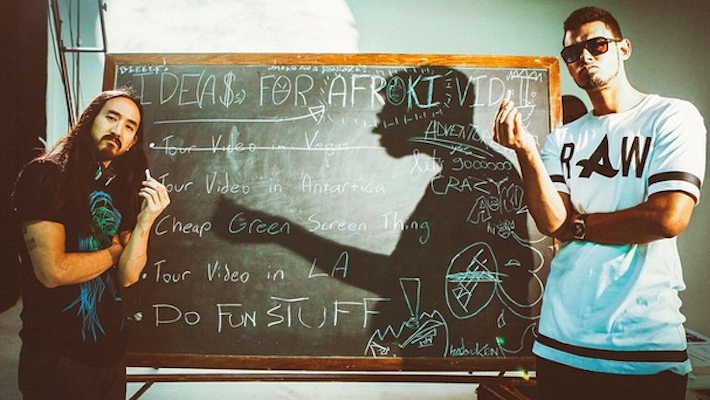 IDE(A$) FOR AFROKI VID
Tour Video in Vegas
Tour Video in Antartica
Cheap Green Screen Thing
Tour Video in LA
DO FUN STUFF
ADVENTURE
let's gooooooo
CRAZY
hadouken
RAW